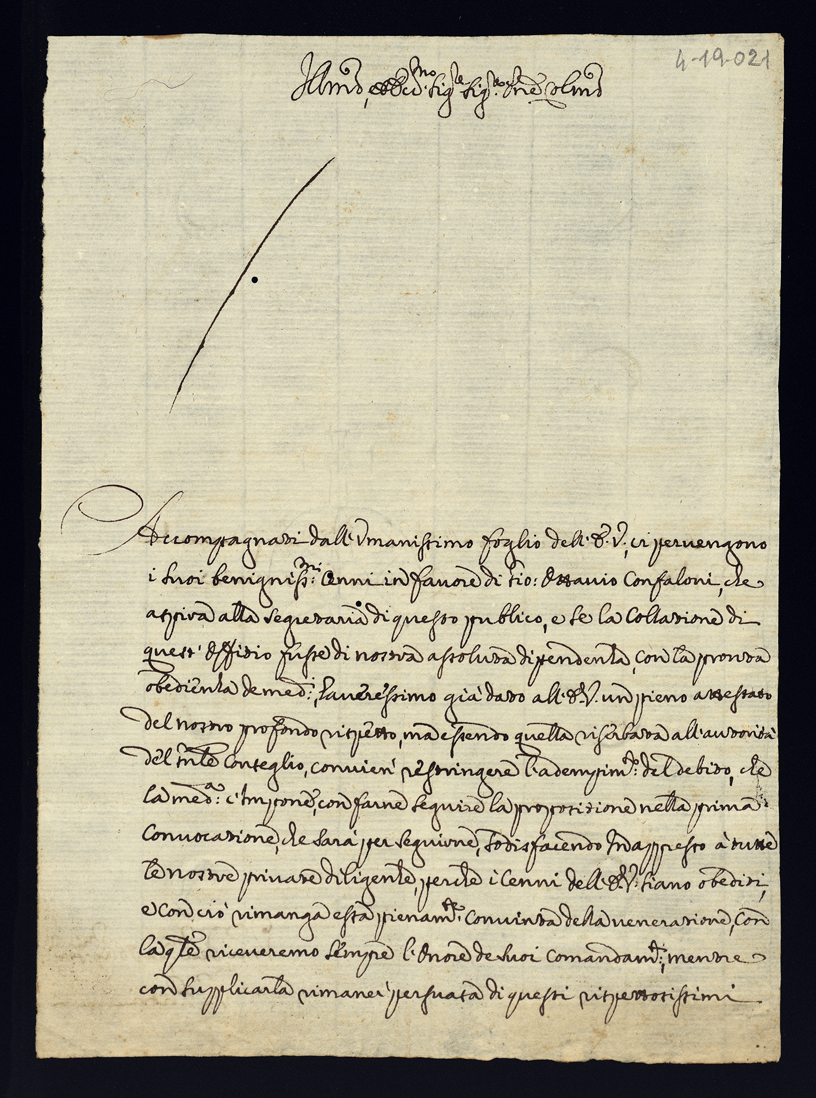 4-19-021
Illmo, ed Eccmo Sigre Sigre Pne Colmo
Accompagnati dall'Vmanissimo foglio dell'E.V., ci pervengono
i suoi benigniss:mi Cenni in favore di Ottavio Confaloni, che
aspira alla Segretaria di questo publico, e se la Collazione di
quest'Offitio fusse di nostra assoluta dipendenza, con la pronta
obedienza de med:i, haveressimo già dato all'E.V. un pieno attestato
del nostro profondo rispetto, ma essendo quella riserbata all'autorità
del Conseglio, convien' restringere l'adempim:to del debito, che
la med:a c'Impone, con farne seguire la propositione nella prima
Convocazione, che sarà per seguirne, sodisfacendo In appresso à tutte
le nostre private diligenze, perche i Cenni dell'E.V. siano obediti,
e con ciò rimanga essa pienam:te convinta della veneratione, con
la qle riceveremo sempre l'Onore de suoi comandam:ti, mentre
con supplicarla rimaner persuasa di questi rispettosissimi